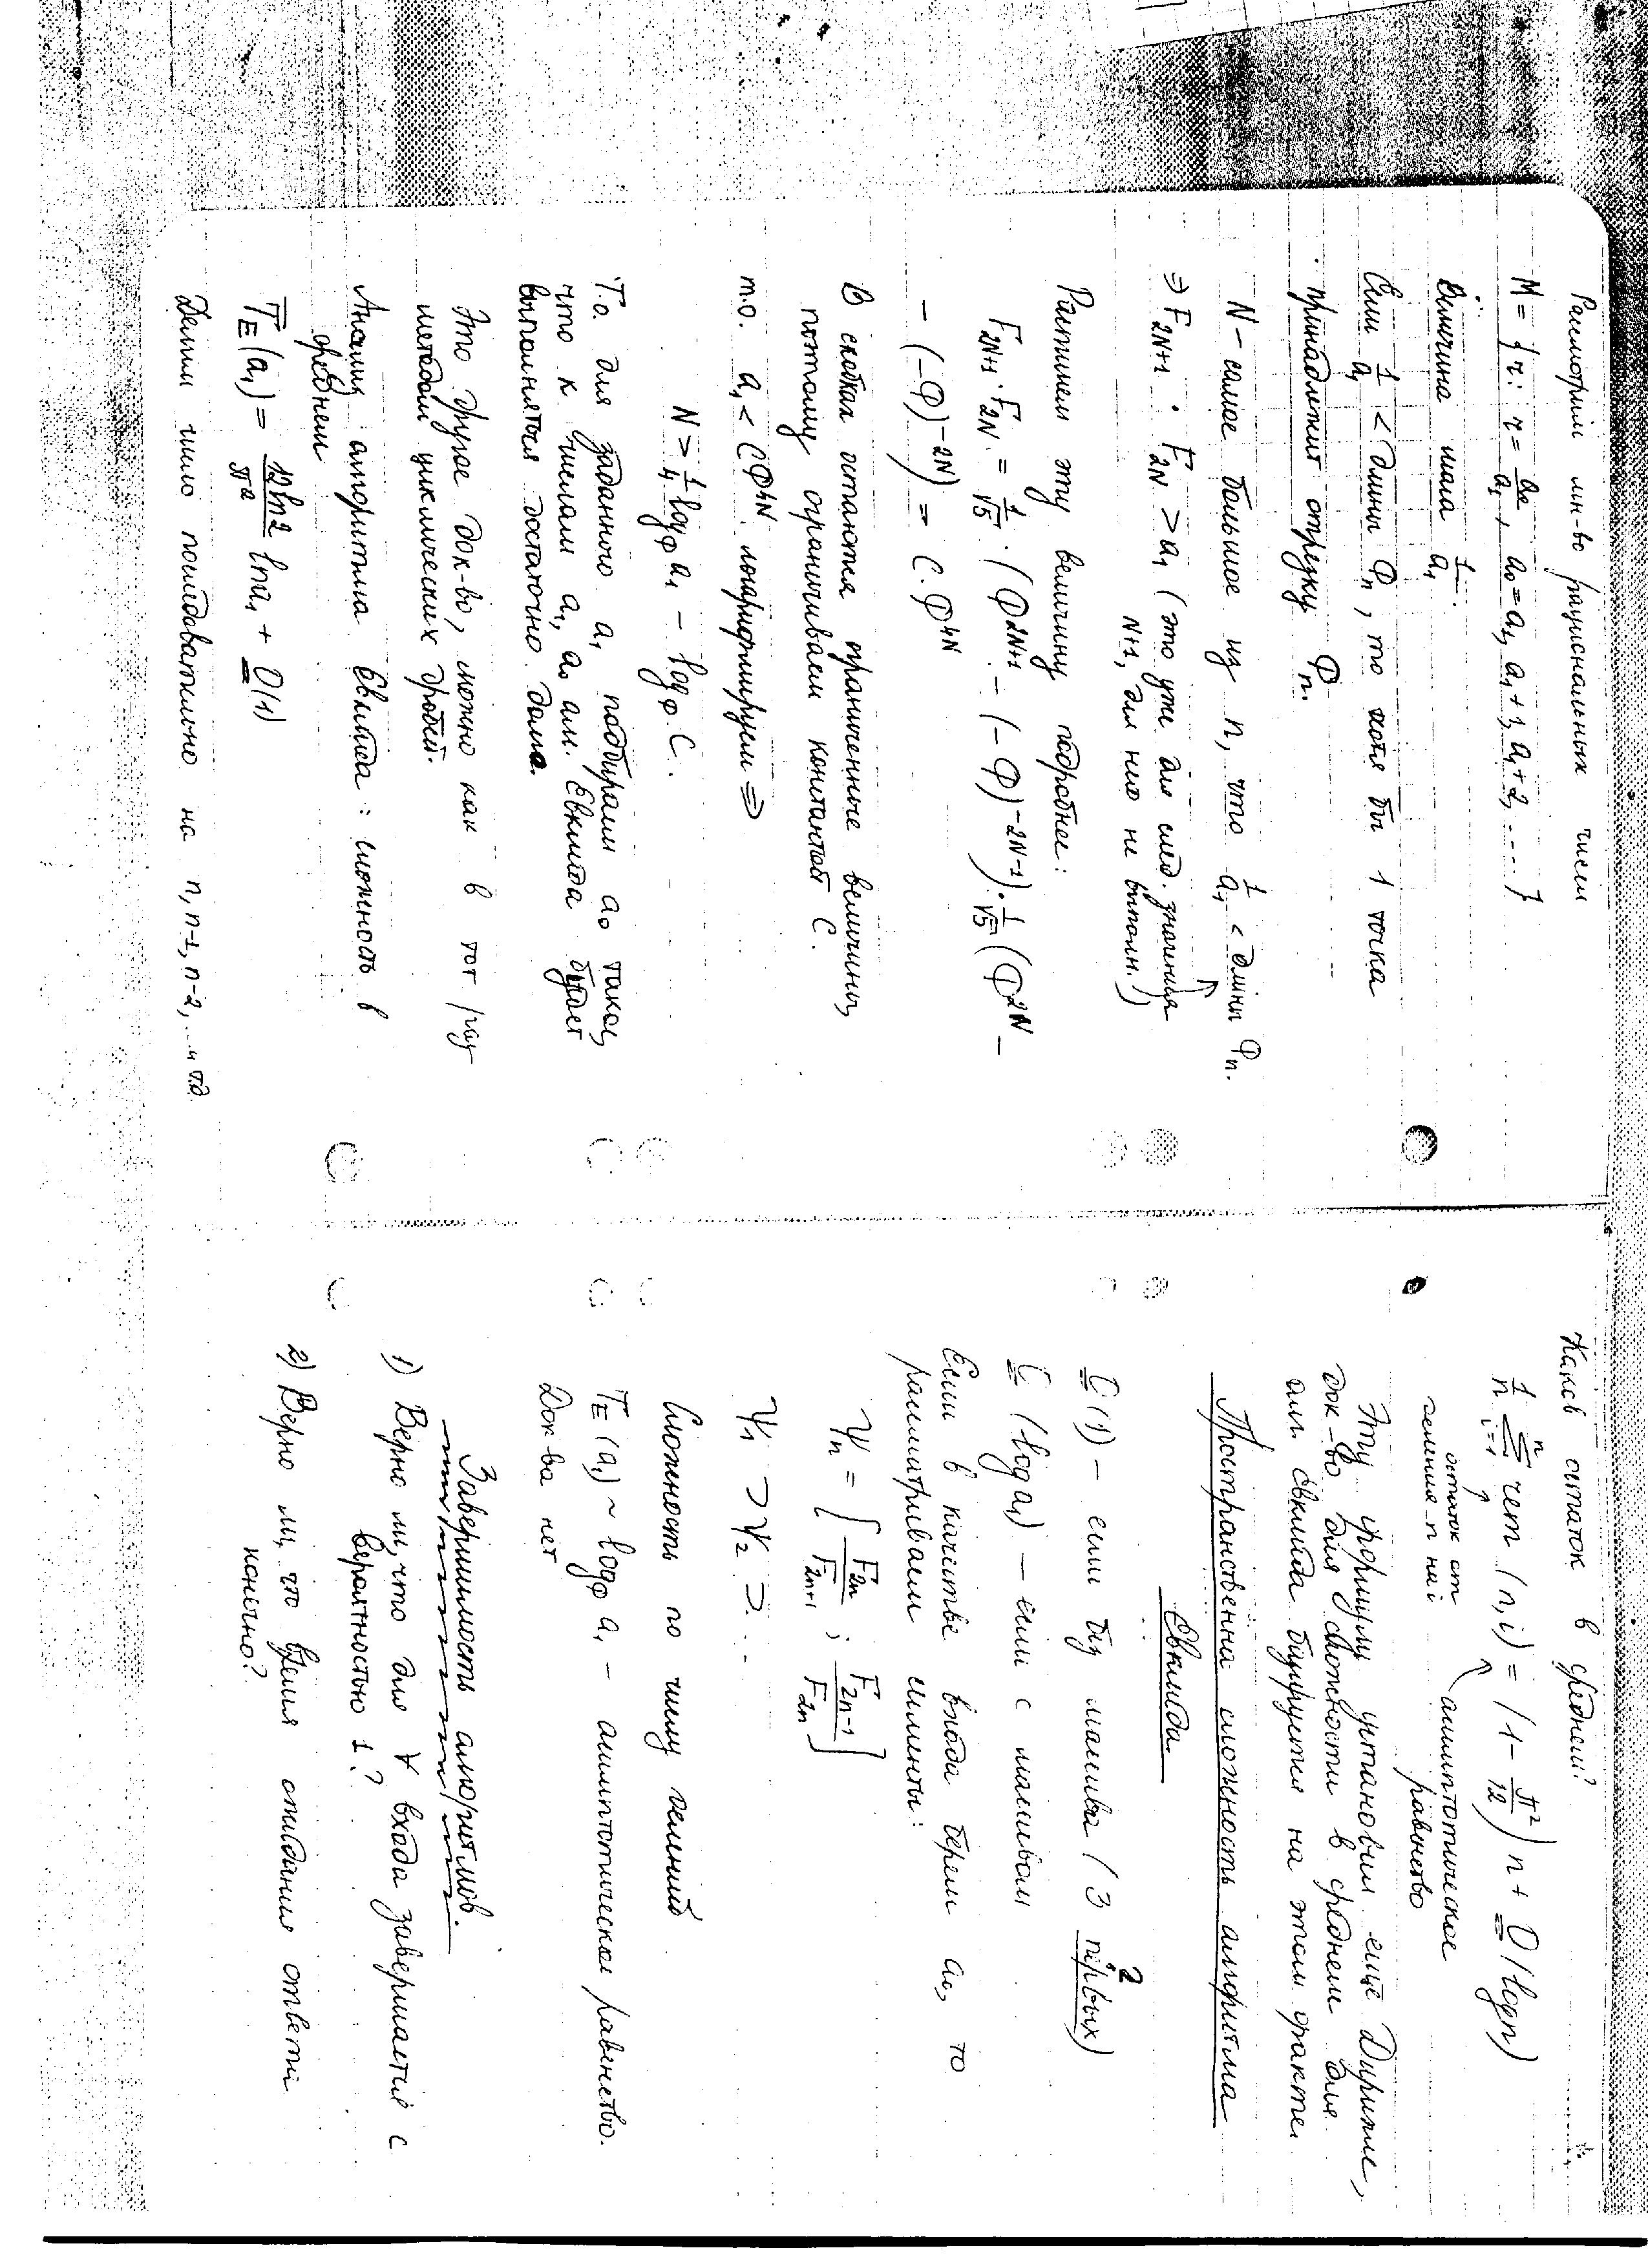 Рассмотрим мн-во рациональных чисел
M = { r : r = a₀/a₁, a₀ = a₁, a₁+1, a₁+2, .... }
Величина шага 1/a₁.
Если 1/a₁ < длины Φₙ, то хотя бы 1 точка
принадлежит отрезку Φₙ.
N – самое большое из n, что 1/a₁ < длины Φₙ.
⇒ F₂N+1 · F₂N > a₁ (это уже для след. значения
N+1, для него не выполн.)
Распишем эту величину подробнее:
F₂N+1 · F₂N = 1/√5 · (Φ^2N+1 – (–Φ)^–2N–1) · 1/√5 (Φ^2N –
– (–Φ)^–2N) = C · Φ^4N
В скобках остаются ограниченные величины,
потому ограничиваем константой C.
т.о. a₁ < CΦ^4N логарифмируем ⇒
N > 1/4 log_Φ a₁ – log_Φ C.
Т.о. для заданного a₁ подбираем a₀ такое,
что к числам a₁, a₀ алг. Евклида будет
выполняться достаточно долго.
Это другое док-во, можно как в тот раз
методом циклических дробей.
Анализ алгоритма Евклида: сложность в
среднем
T̄_E(a₁) = 12 ln2/π² ln a₁ + O(1)
Делим число последовательно на n, n-1, n-2, ... и т.д.
Каков остаток в среднем?
1/n Σ_{i=1}^{n} rem (n, i) = (1 – π²/12) n + O(log n)
остаток от асимптотическое
деления n на i равенство
Эту формулу установил ещё Дирихле,
док-во для сложности в среднем для
алг. Евклида базируется на этом факте.
Пространственна сложность алгоритма
Евклида
C(1) – если без массива (3 первых)
?
C(log a₁) – если с массивом
Если в качестве входа берем a₀, то
рассматриваем сегменты:
Ψₙ = [F₂ₙ/F₂ₙ₊₁ ; F₂ₙ₋₁/F₂ₙ]
Ψ₁ ⊃ Ψ₂ ⊃ ...
Сложность по числу делений
T_E(a₁) ~ log_Φ a₁ – асимптотическое равенство.
Док-ва нет
Завершимость алгоритмов.
1) Верно ли, что для ∀ входа завершается с
вероятностью 1?
2) Верно ли, что время ожидания ответа
конечно?